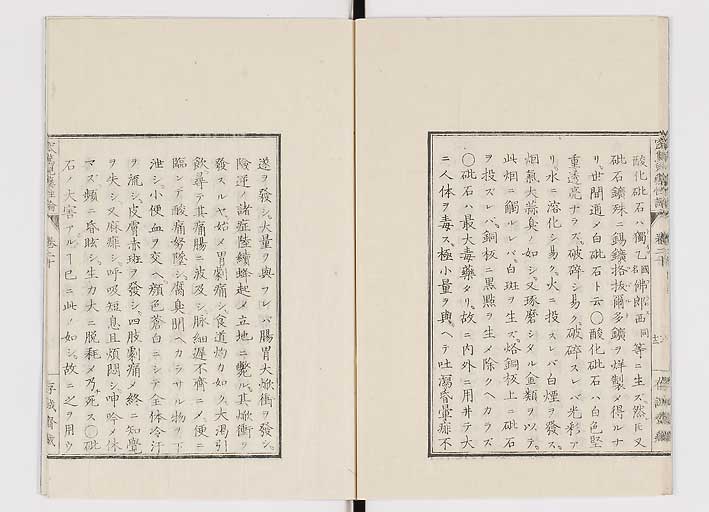 酸化砒石ハ獨乙國名佛郎西同等ニ生ズ然𪜈又
砒石鑛殊ニ錫鑛格抜爾多鑛ヲ烊製メ得ルナ
リ世間通メ白砒石ト云〇酸化砒石ハ白色堅
重透亮ナラズ破碎シ易ク破碎スレバ光彩ア
リ水ニ溶化シ易ク火ニ投スレバ白煙ヲ發ス
烟氣大蒜臭ノ如シ又琢磨シタル金類ヲ以テ
此烟ニ觸ルレバ白斑ヲ生ズ烙銅板上ニ砒石
ヲ投スレバ銅板ニ黒點ヲ生メ除クヘカラズ
〇砒石ハ最大毒藥タリ故ニ内外ニ用井テ大
ニ人体ヲ毒ス極小量ヲ與ヘテ吐瀉昏暈痱不
遂ヲ發シ大量ヲ與フレバ腸胃大焮衝ヲ發シ
險逆ノ諸症陸續蜂起メ立地ニ斃ル其焮衝ヲ
發スルヤ始メ胃劇痛シ食道灼カ如ク大渇引
飲尋テ其痛腸ニ波及シ脉細遲不齊ニメ便ニ
臨ンテ酸痛努墜シ腐臭聞ヘカラサル物ヲ下
泄シ小便血ヲ交ヘ顔色蒼白ニシテ全体冷汗
ヲ流シ皮膚赤斑ヲ發シ四肢劇痛メ終ニ知覺
ヲ失シ又麻痱シ呼吸短息且煩悶シ呻吟メ休
マズ頻ニ昏眩シ生力大ニ脱耗メ乃チ死ス〇砒
石ノ大害アルヿ已ニ此ノ如シ故ニ之ヲ用ウ
卷二十
存誠齋藏